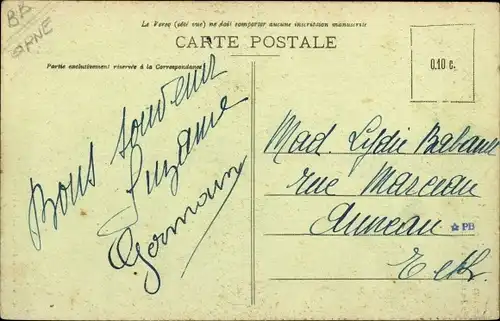 BB
ORNE
Le Verso (côté vue) ne doit comporter aucune inscription manuscrite
CARTE POSTALE
Partie exclusivement réservée à la Correspondance
0.10 c.
Bons souvenir
Suzanne
Germain
Mad. Lydie
rue Marceau
Auneau
PB
E et L.